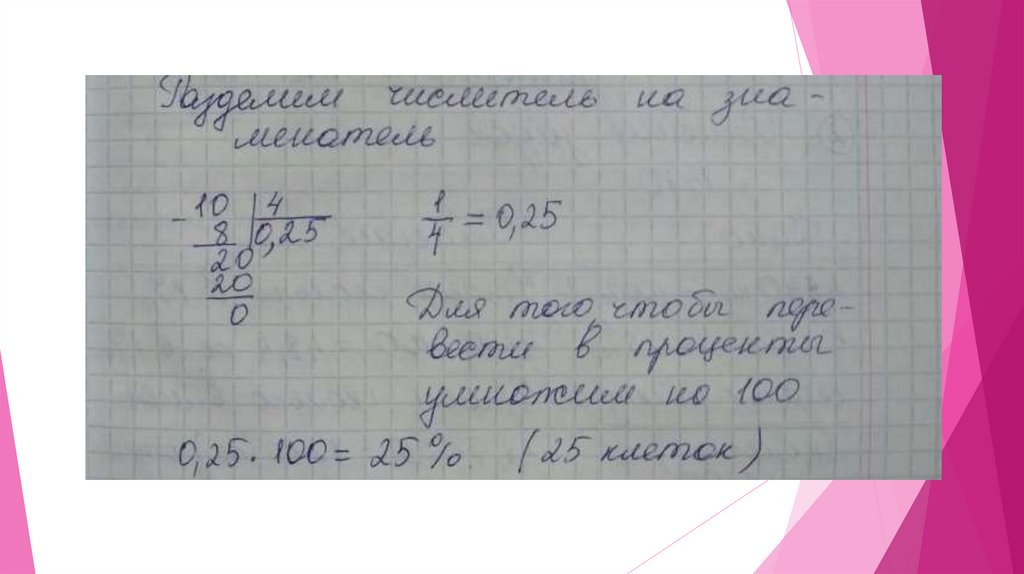 Разделим числитель на зна-
менатель
- 10 | 4
8 | 0,25
20
20
0
1/4 = 0,25
Для того чтобы пере-
вести в проценты
умножим на 100
0,25 · 100 = 25 % (25 клеток)